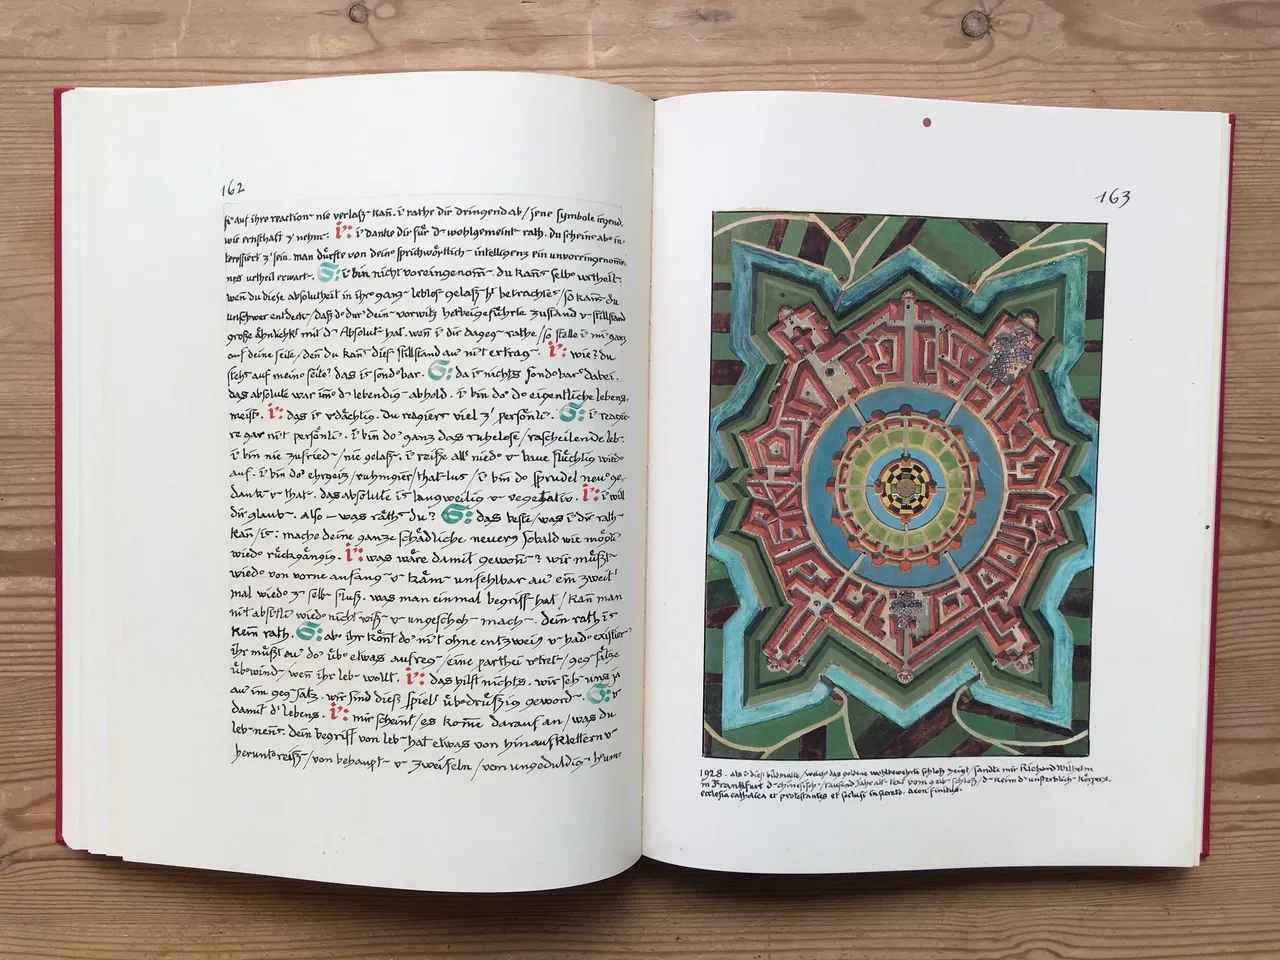 162
auf ihre reaction nie verlass kan̄. i' rathe dir dringend ab / jene symbole irgend,
wie ernsthaft z' nehm. i': i' danke dir für d wohlgemeint rath. du scheinst abo in-
teressiert z' sein. man dürfte von deino sprichwörtlich intelligenz ein unvoreingenom̄e-
nes urtheil erwart. S: i' bin nicht voreingenom̄. du kan̄s selbo urtheil.
wen̄ du diese absolutheit in ihro ganz leblos gelass ht betrachtes / so kan̄s du
unschwer entdeck / daß do dur dein vorwitz herbeigeführte zustand v stillstand
große ähnlichkt mit d Absolut hat. wen̄ i' dir dageg rathe / so stelle i' mi ganz
auf deine seite / den̄ du kan̄s dies stillstand au nit ertrag. i': wie? du
stehs auf meino seite? das is sondobar. S: da is nichts sondobar dabei.
das absolute war im̄o d lebendig abhold. i' bin do do eigentliche lebens,
meisto. i': das is vdächtig. du reagiers viel z' persönli. S: i' reagie-
re gar nit persönli. i' bin do ganz das ruhelose / rascheilende leb.
i' bin nie zufried / nie gelass. i' reiße all niedo v baue flüchtig wiedo
auf. i' bin do ehrgeiz / ruhmgier / thatlus / i' bin do sprudel neuo ge-
dank v that. das absolute is langweilig v vegetativ. i': i' will
dir glaub. Also – was räths du? S: das beste / was i' dir rath
kan̄ / is: mache deine ganze schädliche neuerg sobald wie mögli
wiedo rückgängig. i': was wäre damit gewon̄? wir müßt
wiedo von vorne anfang v käm unfehlbar au ein zweit
mal wiedo z selb schluß. was man einmal begriff hat / kan̄ man
nit absichtli wiedo nicht wiß v ungescheh mach. dein rath is
kein rath. S: abo ihr kön̄t do nit ohne entzweig v hado existier?
ihr müßt eu do übo etwas aufreg / eine parthei vtret / geg sätze
übowind / wen̄ ihr leb wollt. i': das hilft nichts. wir seh uns ja
au im geg satz. wir sind dies spiels übodrüßig geword. S: v
damit d' lebens. i': mir scheint / es kom̄e darauf an / was du
leb nen̄s. dein begriff von leb hat etwas von hinaufklettern v
herunterreiß / von behaupt v zweifeln / von ungeduldig
163
1928. als i' dies bild malte / welch das goldene wohlbewehrte schloß zeigt / sandte mir Richard Wilhelm
in Frankfurt d chinesisch / tausend jahr alt text vom gelb schloß / d keim d unsterblich körpers.
ecclesia catholica et protestantes et seclusi in secreto. aeon finitus.